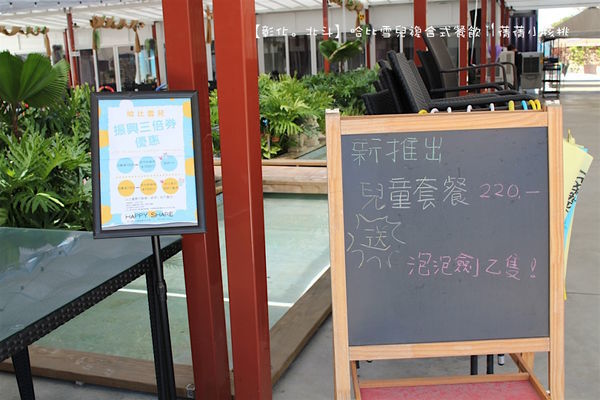 【彰化。北斗】哈比雪兒複合式餐飲||蒨蒨小核桃
哈比雪兒
振興三倍券
優惠
HAPPY SHARE
新推出
兒童套餐 220.-
送
泡泡劍乙隻!